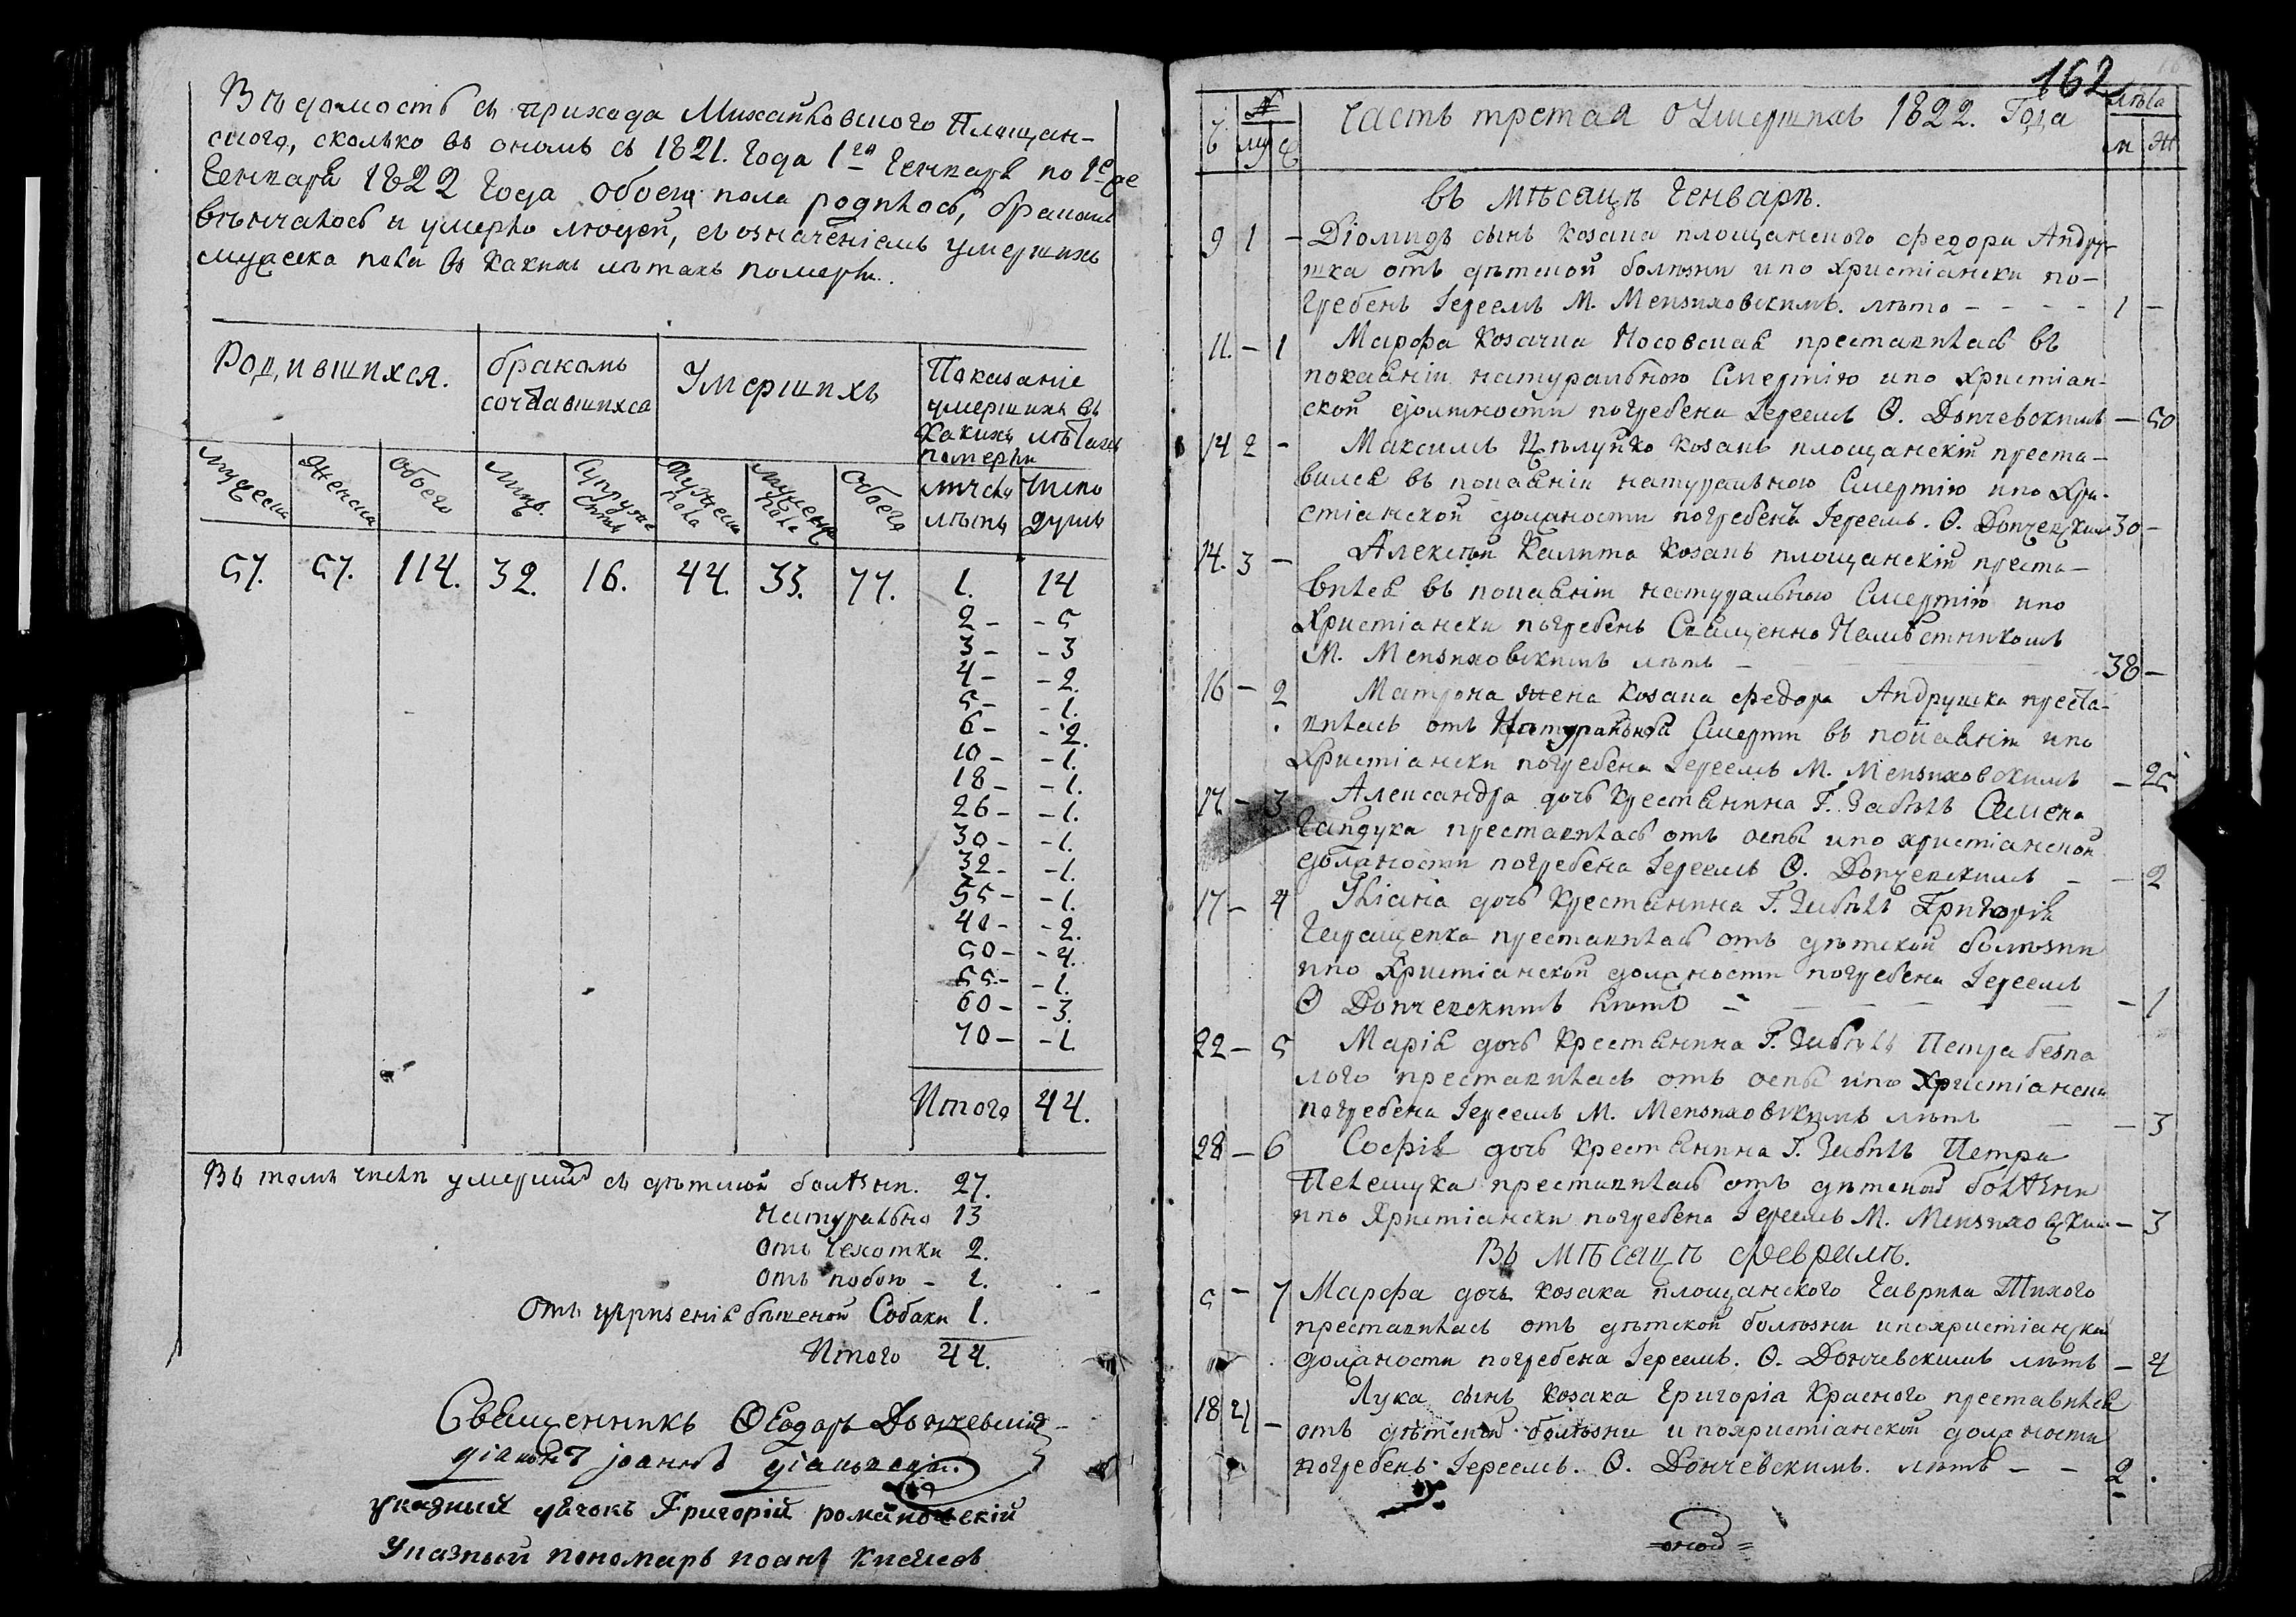 Вѣдомость съ прихода Михайловского Площан-
ского, сколько въ ономъ съ 1821. Года 1го Генваря по 1е
Генваря 1822 Года обоего пола родилось, бракомъ
вѣнчалось и умерло людей, съ означеніемъ умершихъ
мужеска пола въ какихъ лѣтахъ померли.
Родившихся.
бракомъ
сочетавшихся
Умершихъ
Показаніе
умершихъ въ
какихъ лѣтахъ
померли
мужеска
Женска
обоего
Лицъ.
Супруже
ствъ
Мужеска
пола
Женска
пола
Обоего
число
лѣтъ
Число
душъ
57. 57. 114. 32. 16. 44. 33. 77. 1. 14
2 - - 5
3 - - 3
4 - - 2.
5 - - 1.
6 - - 2.
10 - - 1.
18 - - 1.
26 - - 1.
30 - - 1.
32 - - 1.
35 - - 1.
40 - - 2.
50 - - 4.
55 - - 1.
60 - - 3.
70 - - 1.
Итого 44.
Въ томъ числѣ умершихъ съ дѣтской болѣзни. 27.
Натурально 13
отъ чехотки 2.
отъ побою - 1.
Отъ угризенія бѣшеной Собаки 1.
Итого 44.
Священникъ Ѳеодоръ Дончевскій
діаконъ Іоаннъ
указный дячокъ Григорій романовскій
Указный пономарь иоанъ
162
Ч. № Часть третая о Умершихъ 1822. Года лѣта
му ж м ж
въ мѣсацѣ Генварѣ.
9 1 - Діомидъ сынъ козака площанского Федора Андру-
шка отъ дѣтской болѣзни и по христіански по-
гребенъ Іереемъ М. Мензиховскимъ. лѣто - - - - 1 -
11. - 1 Марфа козачка Носовская преставилась въ
покаяніи натуральною Смертію и по христіан-
ской должности погребена Іереемъ Ѳ. Дончевскимъ - 50
14 2 - Максимъ Цѣлуйко козакъ площанскій преста-
вился въ покаяніи натуральною Смертію и по Хри-
стіанской должности погребенъ Іереемъ. Ѳ. Дончевским 30 -
14. 3 - Алексѣй Калита козакъ площанскій преста-
вился въ покаяніи натуральною Смертію и по
Христіански погребенъ Священно Намѣстникомъ
М. Мензиховскимъ лѣтъ - 38 -
16 - 2 Матрона жена козака Федора Андрушка преста-
вилась отъ Натуральной Смерти въ покаяніи и по
Христіански погребена Іереемъ М. Мензиховскимъ - 25
17 - 3 Александра дочь крестянина Г. Забѣлъ Семена
Гайдука преставилась отъ оспы и по христіанской
должности погребена Іереемъ Ѳ. Дончевскимъ - - 2
17 - 4 Уліана дочь крестянина Г. Забѣлъ Григорія
Геращенка преставилась отъ дѣтской болѣзни
и по Христіанской должности погребена Іереемъ
Ѳ Дончевскимъ лѣтъ - - 1
22 - 5 Марія дочь крестянина Г. Забѣлъ Петра безпа
лого преставилась отъ оспы и по Христіански
погребена Іереемъ М. Мензиховскимъ лѣтъ - - 3
28 - 6 Софія дочь крестянина Г. Забѣлъ Петра
преставилась отъ дѣтской болѣзни
и по Христіански погребена Іереемъ М. Мензиховским - 3
Въ мѣсацѣ Февралѣ.
5 - 7 Марфа дочь козака площанского Гаврила Тихого
преставилась отъ дѣтской болѣзни и по христіански
должности погребена Іереемъ. Ѳ. Дончевскимъ лѣтъ - 4
18 4 - Лука сынъ козака Григорія Красного преставился
отъ дѣтской болѣзни и по христіанской должности
погребенъ Іереемъ. Ѳ. Дончевскимъ. лѣтъ - - 2 .